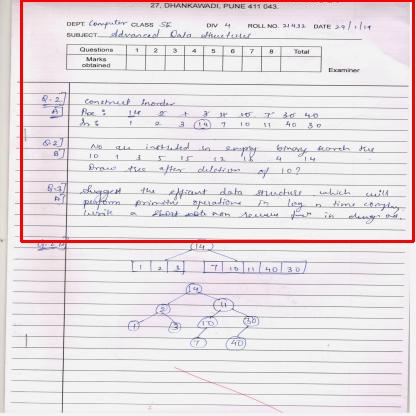 27, DHANKAWADI, PUNE 411 043.
DEPT. Computer CLASS SE DIV 4 ROLL NO. 21432 DATE 29/1/19
SUBJECT Advanced Data structures
Questions 1 2 3 4 5 6 7 8 Total
Marks obtained
Examiner
Q.2] Construct Inorder
A] Pre: 14 2 1 3 11 10 7 30 40
In: 1 2 3 14 7 10 11 40 30
Q.2] No are inserted in empty binary search tree
B] 10 1 3 5 15 12 16 4 14
Draw tree after deletion of 10?
Q.3] Suggest the efficient data structure which will
A] perform primitive operations in log n time
write a short non
14
1 2 3 7 10 11 40 30
14
2 11
1 3 10 30
7 40